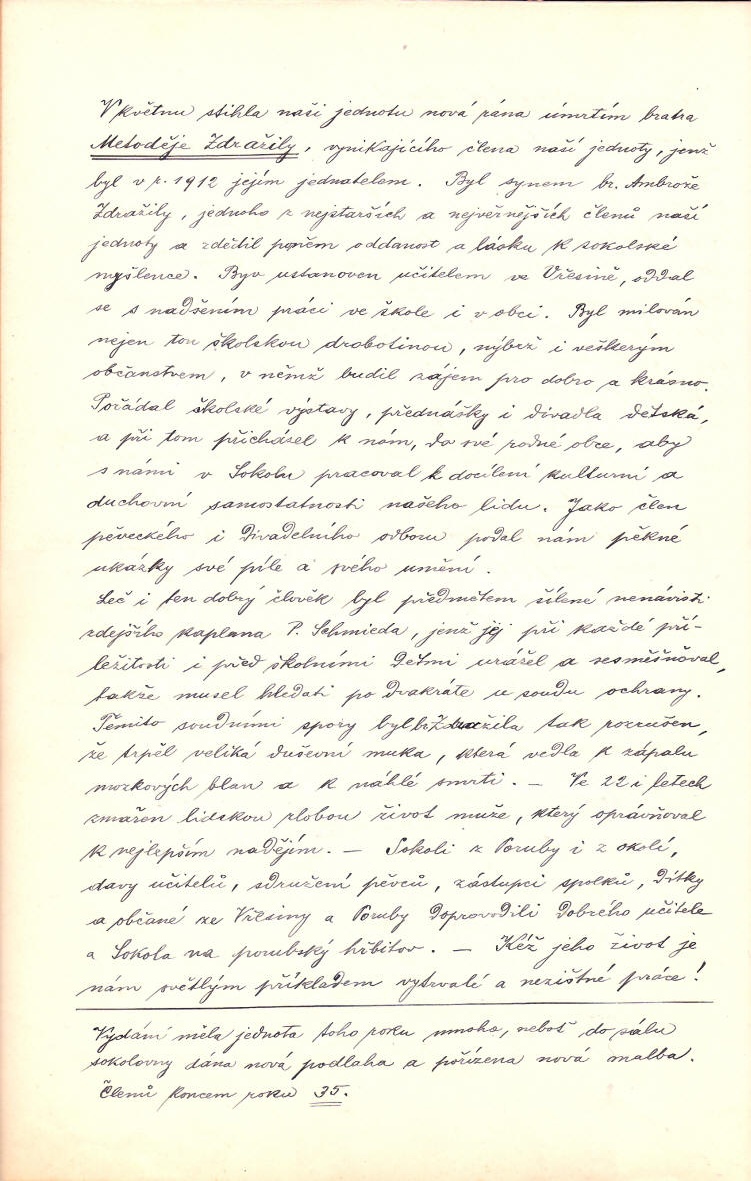 V květnu stihla naši jednotu nová rána úmrtím bratra
Metoděje Zdražily, vynikajícího člena naší jednoty, jenž
byl v r. 1912 jejím jednatelem. Byl synem br. Ambrože
Zdražily, jednoho z nejstarších a nejvěrnějších členů naší
jednoty a zdědil po něm oddanost a lásku k sokolské
myšlence. Byv ustanoven učitelem ve Vřesině, oddal
se s nadšením práci ve škole i v obci. Byl milován
nejen tou školskou drobotinou, nýbrž i veškerým
občanstvem, v němž budil zájem pro dobro a krásno.
Pořádal školské výstavy, přednášky i divadla dětská,
a při tom přicházel k nám, do své rodné obce, aby
s námi v Sokolu pracoval k docílení kulturní a
duchovní samostatnosti našeho lidu. Jako člen
pěveckého i divadelního odboru podal nám pěkné
ukázky své píle a svého umění.
Leč i ten dobrý člověk byl předmětem šílené nenávisti
zdejšího kaplana P. Schmieda, jenž jej při každé pří-
ležitosti i před školními dětmi urážel a zesměšňoval,
takže musel hledati po dvakráte u soudu ochrany.
Těmito soudními spory byl br. Zdražila tak rozrušen,
že trpěl veliká duševní muka, která vedla k zápalu
mozkových blan a k náhlé smrti. — Ve 22 i letech
zmařen lidskou zlobou život muže, který oprávňoval
k nejlepším nadějím. — Sokoli z Poruby i z okolí,
davy učitelů, sdružení pěvců, zástupci spolků, dítky
a občané ze Vřesiny a Poruby doprovodili dobrého učitele
a Sokola na porubský hřbitov. — Kéž jeho život je
nám světlým příkladem vytrvalé a nezištné práce!
Vydání měla jednota toho roku mnoho, neboť do sálu
sokolovny dána nová podlaha a pořízena nová malba.
Členů koncem roku 35.